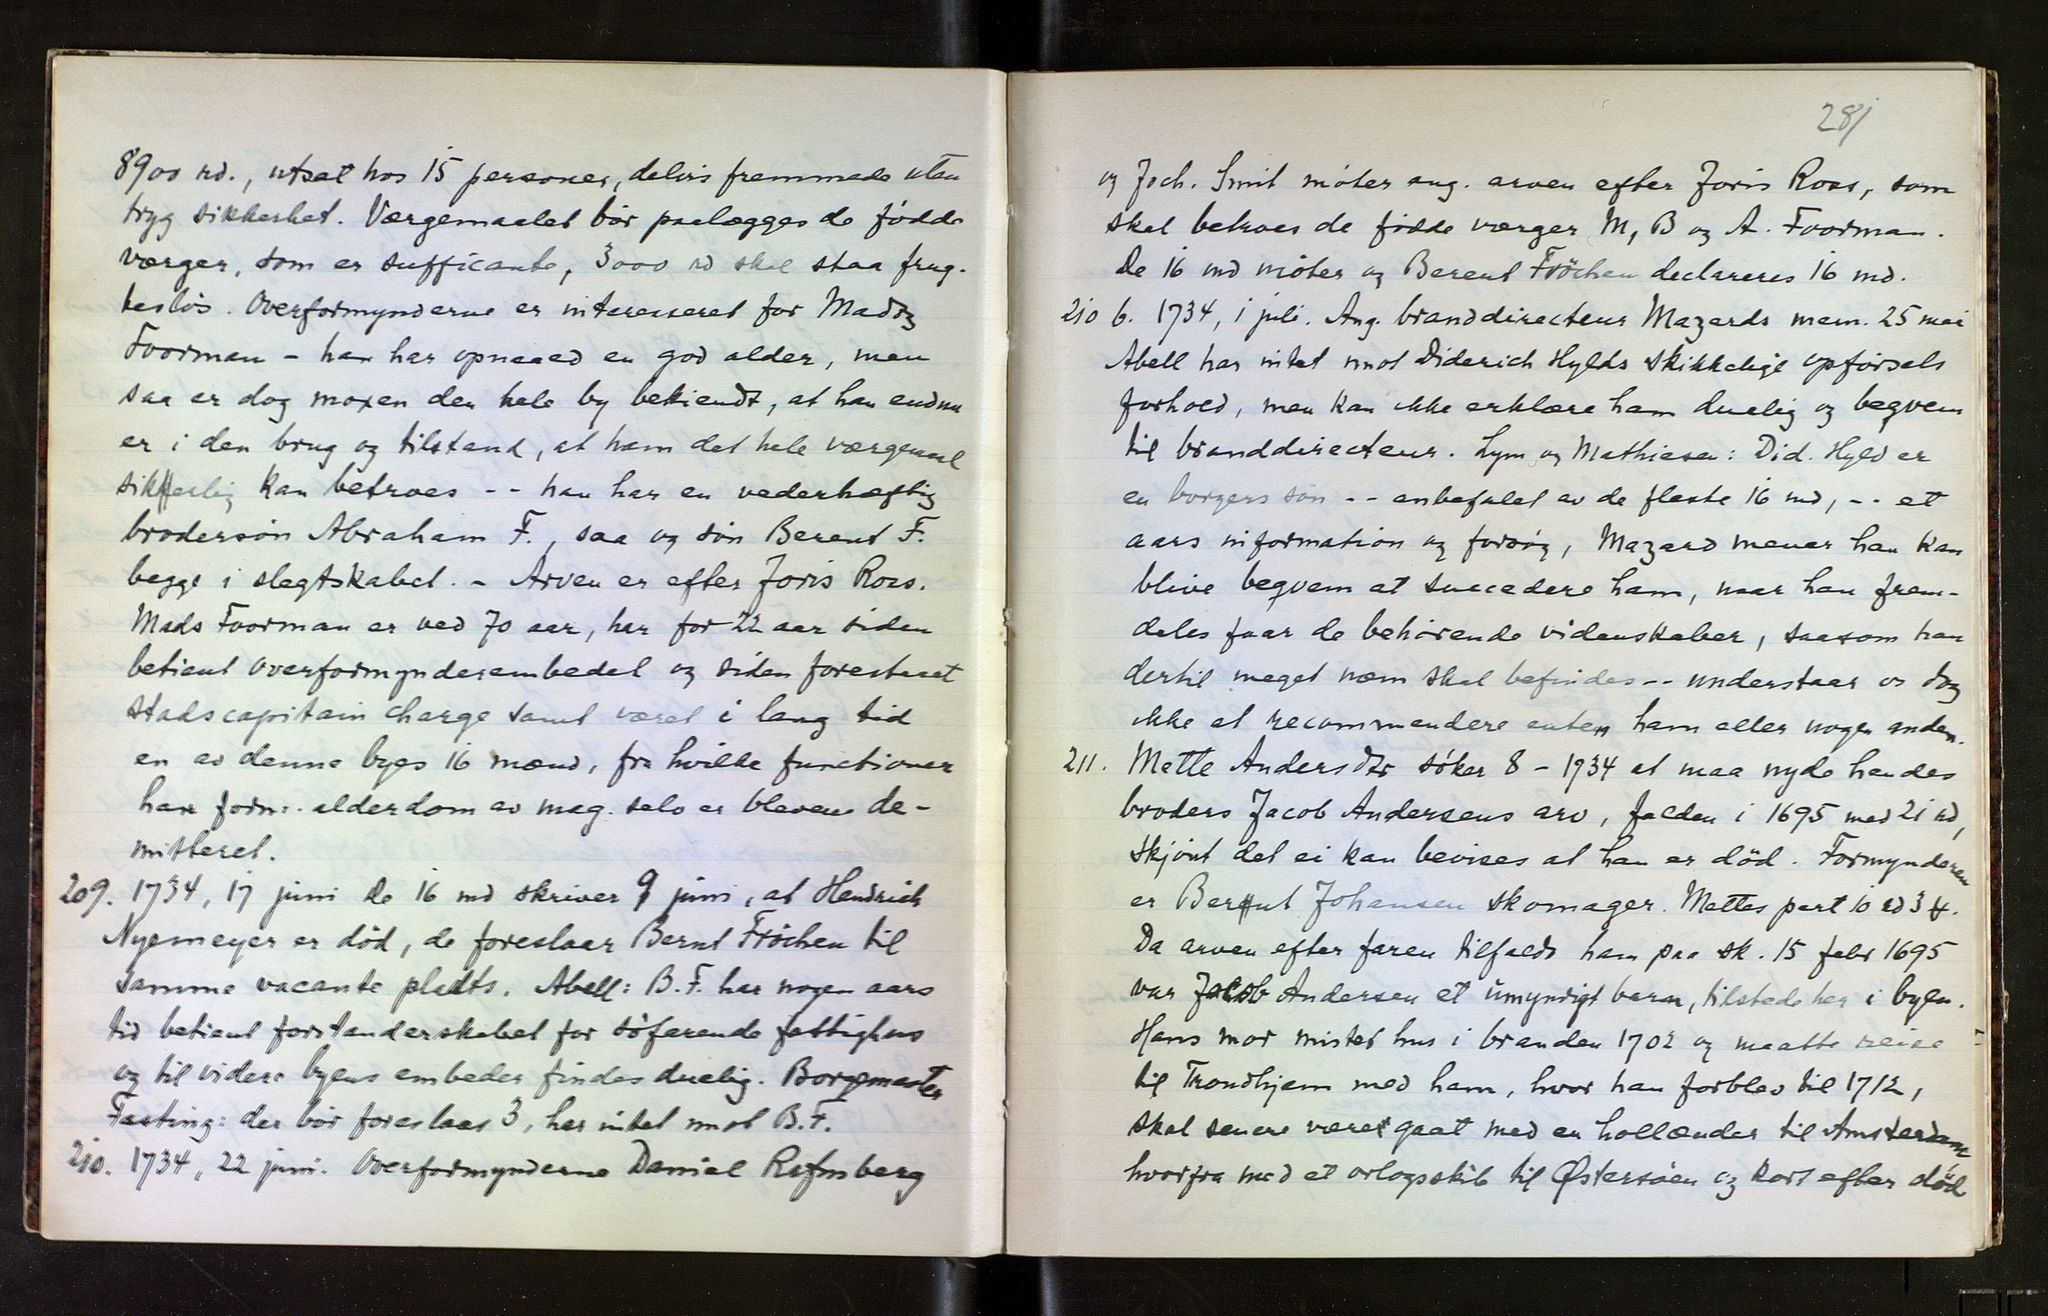 8900 rd., utsat hos 15 personer, delvis fremmede uten
tryg sikkerhet. Værgemaalet bör paalegges de fødde
værger, som er sufficante, 3000 rd skal staa frug-
tesløs. Overformynderne er interesseret for Mads
Foorman - han har opnaaed en god alder, men
saa er dog moxen den hele by bekiendt, at han endnu
er i den brug og tilstand, at ham det hele værgemaal
sikkerlig kan betroes -- han har en vederhæftig
brodersön Abraham F., saa og sön Berent F.
begge i slegtskabet. - Arven er efter Joris Roas.
Mads Foorman er ved 70 aar, har for 22 aar siden
betient overformynderembedet og siden forestaaet
stadscapitain charge samt været i lang tid
en av denne byes 16 mænd, fra hvilke functioner
han form: alderdom av mag. selv er bleven de-
mitteret.
209. 1734, 17 juni De 16 md skriver 9 juni, at Hendrich
Nyemeyer er död, de foreslaar Bernt Fröchen til
samme vacante pladts. Abell: B.F. har nogen aars
tid betient forstanderskabet for söfarende fattighus
og til videre byens embeder findes duelig. Borgmester
Fasting: der bör foreslaaes 3, har intet imot B.F.
210. 1734, 22 juni. Overformynderne Daniel
281
og Joch. Smit möter ang. arven efter Joris Roas, som
skal betroes de födde værger M, B og A. Foorman.
De 16 md möter og Berent Fröchen declareres 16 md.
210 b. 1734, 1 juli. Ang. branddirecteur Mazards mem. 25 mai
Abell har intet imot Diderich Hylds skikkelige opförsels
forhold, men kan ikke erklære ham duelig og beqvem
til branddirecteur. Lym og Mathiesen: Did. Hyld er
en borgers sön -- anbefalet av de fleste 16 md, -- et
aars information og forsög, Mazard mener han kan
blive beqvem at succedere ham, naar han frem-
deles faar de behörende videnskaber, saasom han
dertil meget nem skal befindes -- understaar os dog
ikke at recommendere enten ham eller nogen anden.
211. Mette Andersdtr söker 8 - 1734 at maa nyde hendes
broders Jacob Andersens arv, falden i 1695 med 21 rd,
skjönt det ei kan bevises at han er död. Formynderen
er Berent Johansen skomager. Mettes part 10 rd 3 #.
Da arven efter faren tilfaldt ham paa sk. 15 febr 1695
var Jacob Andersen et umyndigt barn, tilstede her i byen.
Hans mor mistet hus i branden 1702 og maatte reise
til Trondhjem med ham, hvor han forblev til 1712,
skal senere være gaat med en hollænder til Amsterdam
hvorfra med et orlogsskib til Østersöen og kort efter död